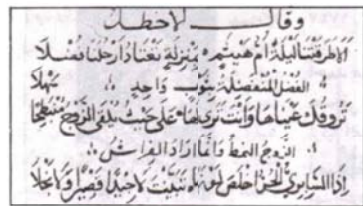 وقال الأخطل
ألا طرقتنا ليلة أم هيثم بمنزلة تعتاد أرحلنا فضلا
الفضل المتفضلة بثوب واحد
تروقك عيناها وأنت ترى لها على حيث يلقى الزوج منتفجا سهلا
الزوج النمط وانما اراد الفراش
إذا السابري الحر اخلص لونها تبينت لا جيدا قصيرا ولا عطلا